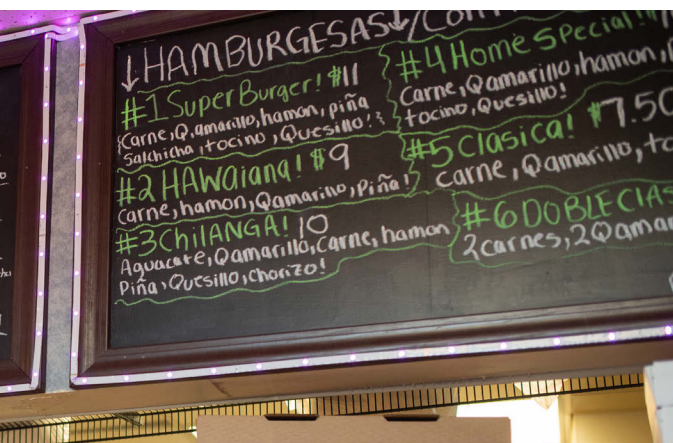 ↓HAMBURGESAS↓/Con
#1 SuperBurger! $11
{Carne, Q.amarillo, hamon, piña
Salchicha, tocino, Quesillo!}
#2 HAWaiana! $9
Carne, hamon, Qamarillo, Piña!
#3 ChilANGA! 10
Aguacate, Qamarillo, carne, hamon
Piña, Quesillo, Chorizo!
#4 Home Special! $1
Carne, Qamarillo, hamon,
tocino, Quesillo!
#5 Clasica! $7.50
Carne, Qamarillo, to
#6 DOBLE CLAS
2 carnes, 2 Qamar